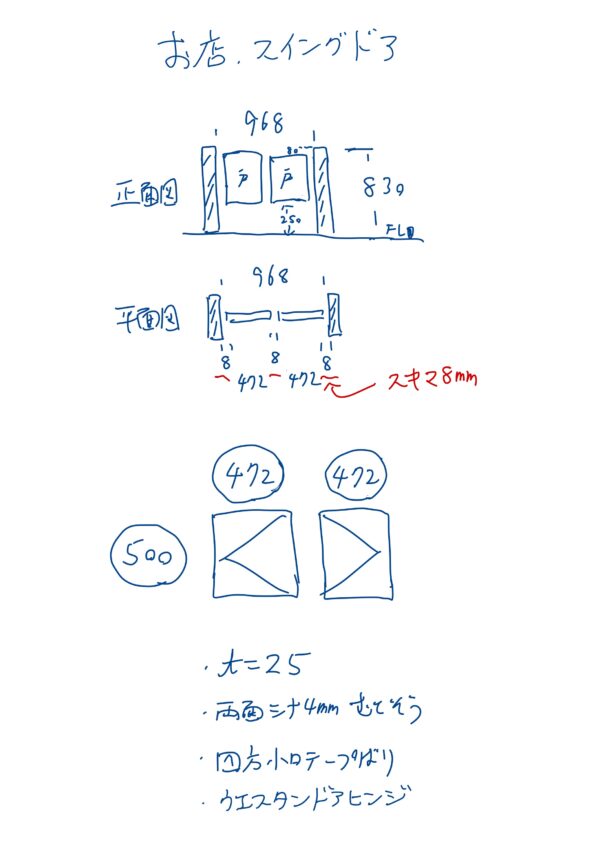 お店.スイングドア
968
正面図
戸
戸
80
250
830
FL
968
平面図
8
8
8
472
472
スキマ8mm
472
472
500
・t=25
・両面シナ4mm むとそう
・四方小口テープばり
・ウエスタンドアヒンジ